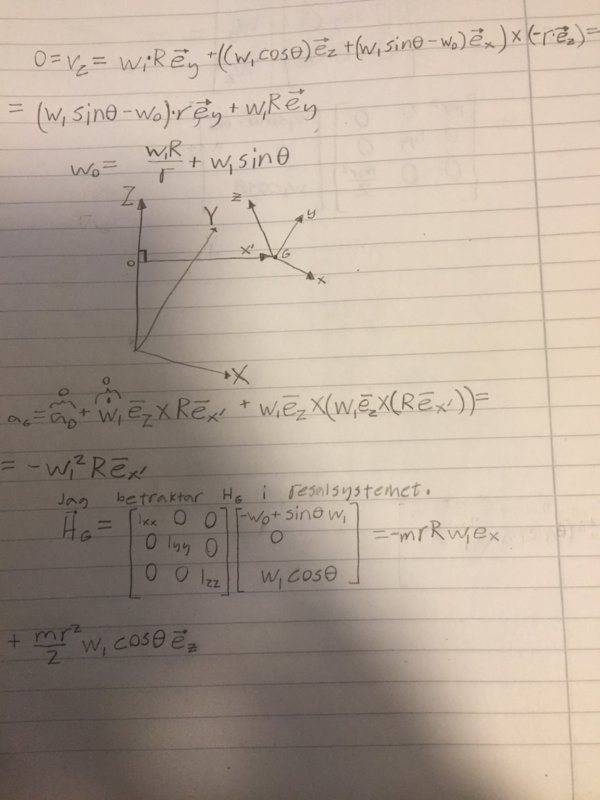 0 = v₂ = w₁·R e⃗y + ((w₁cosθ)e⃗z + (w₁sinθ-w₀)e⃗x) × (-r·e⃗z) =
= (w₁sinθ-w₀)·r e⃗y + w₁R e⃗y
w₀ = w₁R/r + w₁sinθ
Z
Y
z
y
o
x'
G
x
X
0 0
a_G = a̅_D + ẇ₁ e̅_Z × R e̅x' + w₁e̅_Z × (w₁e̅_Z × (R e̅x')) =
= -w₁²R e̅x'
Jag betraktar H_G i resalsystemet.
H⃗_G = [Ixx 0 0; 0 Iyy 0; 0 0 Izz] [-w₀+sinθ w₁; 0; w₁cosθ] = -mrRw₁ex
+ mr²/2 w₁cosθ e⃗z